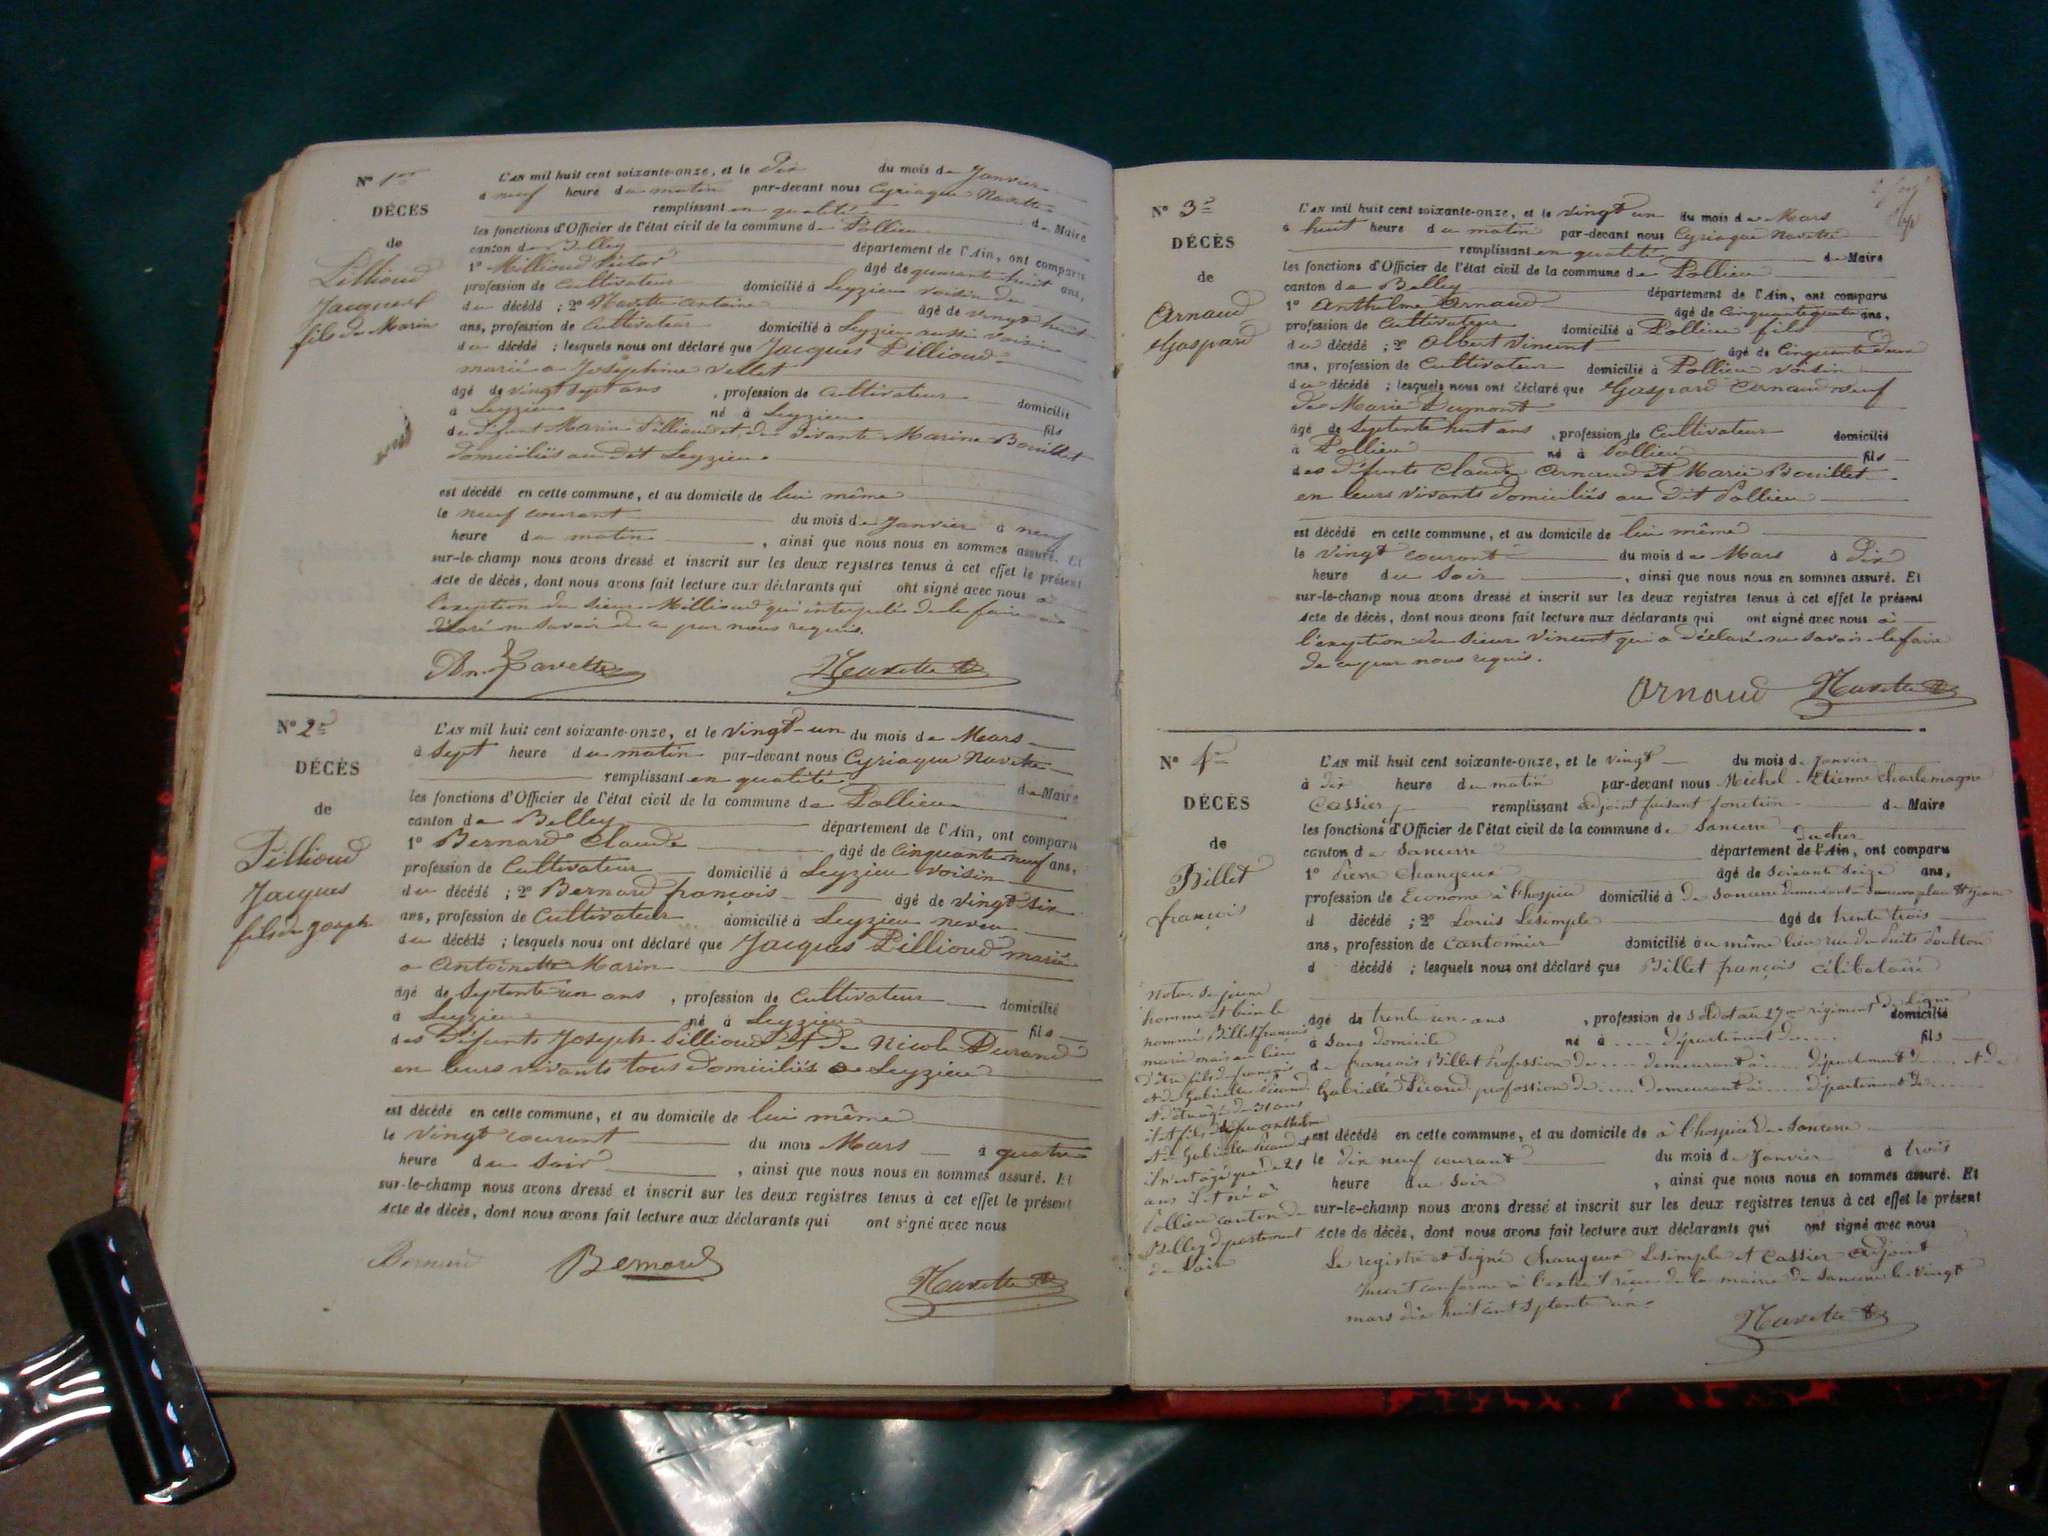 N° 1er
DÉCÈS
de
Pillioud
Jacques
fils de Marin
L'AN mil huit cent soixante-onze, et le Dix du mois de Janvier
a neuf heure du matin par-devant nous Cyriaque Navette
remplissant en qualité de Maire
les fonctions d'Officier de l'état civil de la commune de Pollieu
canton de Belley département de l'Ain, ont comparu
1° Millioud Victor âgé de quarante huit ans,
profession de Cultivateur domicilié à Leyzieu voisin
du décédé ; 2° Navette Antoine âgé de vingt huit
ans, profession de Cultivateur domicilié à Leyzieu aussi voisin
du décédé ; lesquels nous ont déclaré que Jacques Pillioud
marié a Joséphine Vellet
âgé de vingt sept ans , profession de Cultivateur domicilié
à Leyzieu né à Leyzieu fils
de défunt Marin Pillioud et de vivante Marine Bouillet
domiciliés au dit Leyzieu
est décédé en cette commune, et au domicile de lui même
le neuf courant du mois de Janvier à neuf
heure du matin , ainsi que nous nous en sommes assuré. Et
sur-le-champ nous avons dressé et inscrit sur les deux registres tenus à cet effet le présent
acte de décès, dont nous avons fait lecture aux déclarants qui ont signé avec nous a
l'exeption du sieur Millioud qui interpellé de le faire a
déclaré ne savoir de ce par nous requis.
An. Navette Navette
N° 2e
DÉCÈS
de
Pillioud
Jacques
fils de Joseph
L'AN mil huit cent soixante-onze, et le vingt-un du mois de Mars
à Sept heure du matin par-devant nous Cyriaque Navette
remplissant en qualité de Maire
les fonctions d'Officier de l'état civil de la commune de Pollieu
canton de Belley département de l'Ain, ont comparu
1° Bernard Claude âgé de Cinquante neuf ans,
profession de Cultivateur domicilié à Leyzieu voisin
du décédé ; 2° Bernard françois âgé de vingt six
ans, profession de Cultivateur domicilié à Leyzieu neveu
du décédé ; lesquels nous ont déclaré que Jacques Pillioud marié
a Antoinette Marin
âgé de Septente un ans , profession de Cultivateur domicilié
à Leyzieu né à Leyzieu fils
des défunts Joseph Pillioud et de Nicole Durand
en leurs vivants tous domiciliés a Leyzieu
est décédé en cette commune, et au domicile de lui même
le vingt courant du mois Mars à quatre
heure du soir , ainsi que nous nous en sommes assuré. Et
sur-le-champ nous avons dressé et inscrit sur les deux registres tenus à cet effet le présent
acte de décès, dont nous avons fait lecture aux déclarants qui ont signé avec nous
Bernard Bernard
Navette
N° 3e
DÉCÈS
de
Arnaud
Gaspard
L'AN mil huit cent soixante-onze, et le vingt un du mois de Mars
a huit heure du matin par-devant nous Cyriaque Navette
remplissant en qualité de Maire
les fonctions d'Officier de l'état civil de la commune de Pollieu
canton de Belley département de l'Ain, ont comparu
1° Anthelme Arnaud âgé de Cinquante quatre ans,
profession de Cultivateur domicilié à Pollieu fils
du décédé ; 2° Albert Vincent âgé de Cinquante deux
ans, profession de Cultivateur domicilié à Pollieu voisin
du décédé ; lesquels nous ont déclaré que Gaspard Arnaud veuf
de Marie Dumont
âgé de Septente huit ans , profession de Cultivateur domicilié
à Pollieu né à Pollieu fils
des défunts Claude Arnaud et Marie Bouillet
en leurs vivants domiciliés au dit Pollieu
est décédé en cette commune, et au domicile de lui même
le vingt courant du mois de Mars à Dix
heure du soir , ainsi que nous nous en sommes assuré. Et
sur-le-champ nous avons dressé et inscrit sur les deux registres tenus à cet effet le présent
acte de décès, dont nous avons fait lecture aux déclarants qui ont signé avec nous a
l'exeption du sieur Vincent qui a déclaré ne savoir le faire
de ce par nous requis.
Arnaud Navette
N° 4e
DÉCÈS
de
Billet
françois
L'AN mil huit cent soixante-onze, et le vingt du mois de Janvier
à dix heure du matin par-devant nous Michel Etienne Charlemagne
Cassier remplissant adjoint faisant fonction de Maire
les fonctions d'Officier de l'état civil de la commune de Sancerre
du cher
canton de Sancerre département de l'Ain, ont comparu
1° Pierre Changeux âgé de Soixante Seize ans,
profession de Econome à l'hospice domicilié à de Sancerre demeurant a Sancerre place St Jean
d décédé ; 2° Louis Lesimple âgé de trente trois
ans, profession de Cantonnier domicilié au même lieu rue du Puits
d décédé ; lesquels nous ont déclaré que Billet françois célibataire
âgé de trente un ans , profession de Soldat au 27me régiment de ligne domicilié
à Sans domicile né à .... département de .... fils
d françois Billet Profession de .... demeurant à .... département de .... et de
Gabrielle Picard profession de .... demeurant à .... département de ....
est décédé en cette commune, et au domicile de à l'hospice de Sancerre
le dix neuf courant du mois de Janvier à trois
heure du soir , ainsi que nous nous en sommes assuré. Et
sur-le-champ nous avons dressé et inscrit sur les deux registres tenus à cet effet le présent
acte de décès, dont nous avons fait lecture aux déclarants qui ont signé avec nous
Le registre est signé Changeux Lesimple et Cassier adjoint
Inscrit conforme à l'extrait reçu de la mairie de Sancerre le vingt
mars dix huit cent septente un
Navette
Nota. Le jeune
homme est bien le
nommé Billet françois
mais au lieu
d'être fils de françois
et de Gabrielle Picard
et d'être âgé de 31 ans
il est fils de feu anthelme
et de Gabrielle Picard et
il n'est agé que de 21
ans il est né à
Pollieu canton de
Belley département
de l'ain